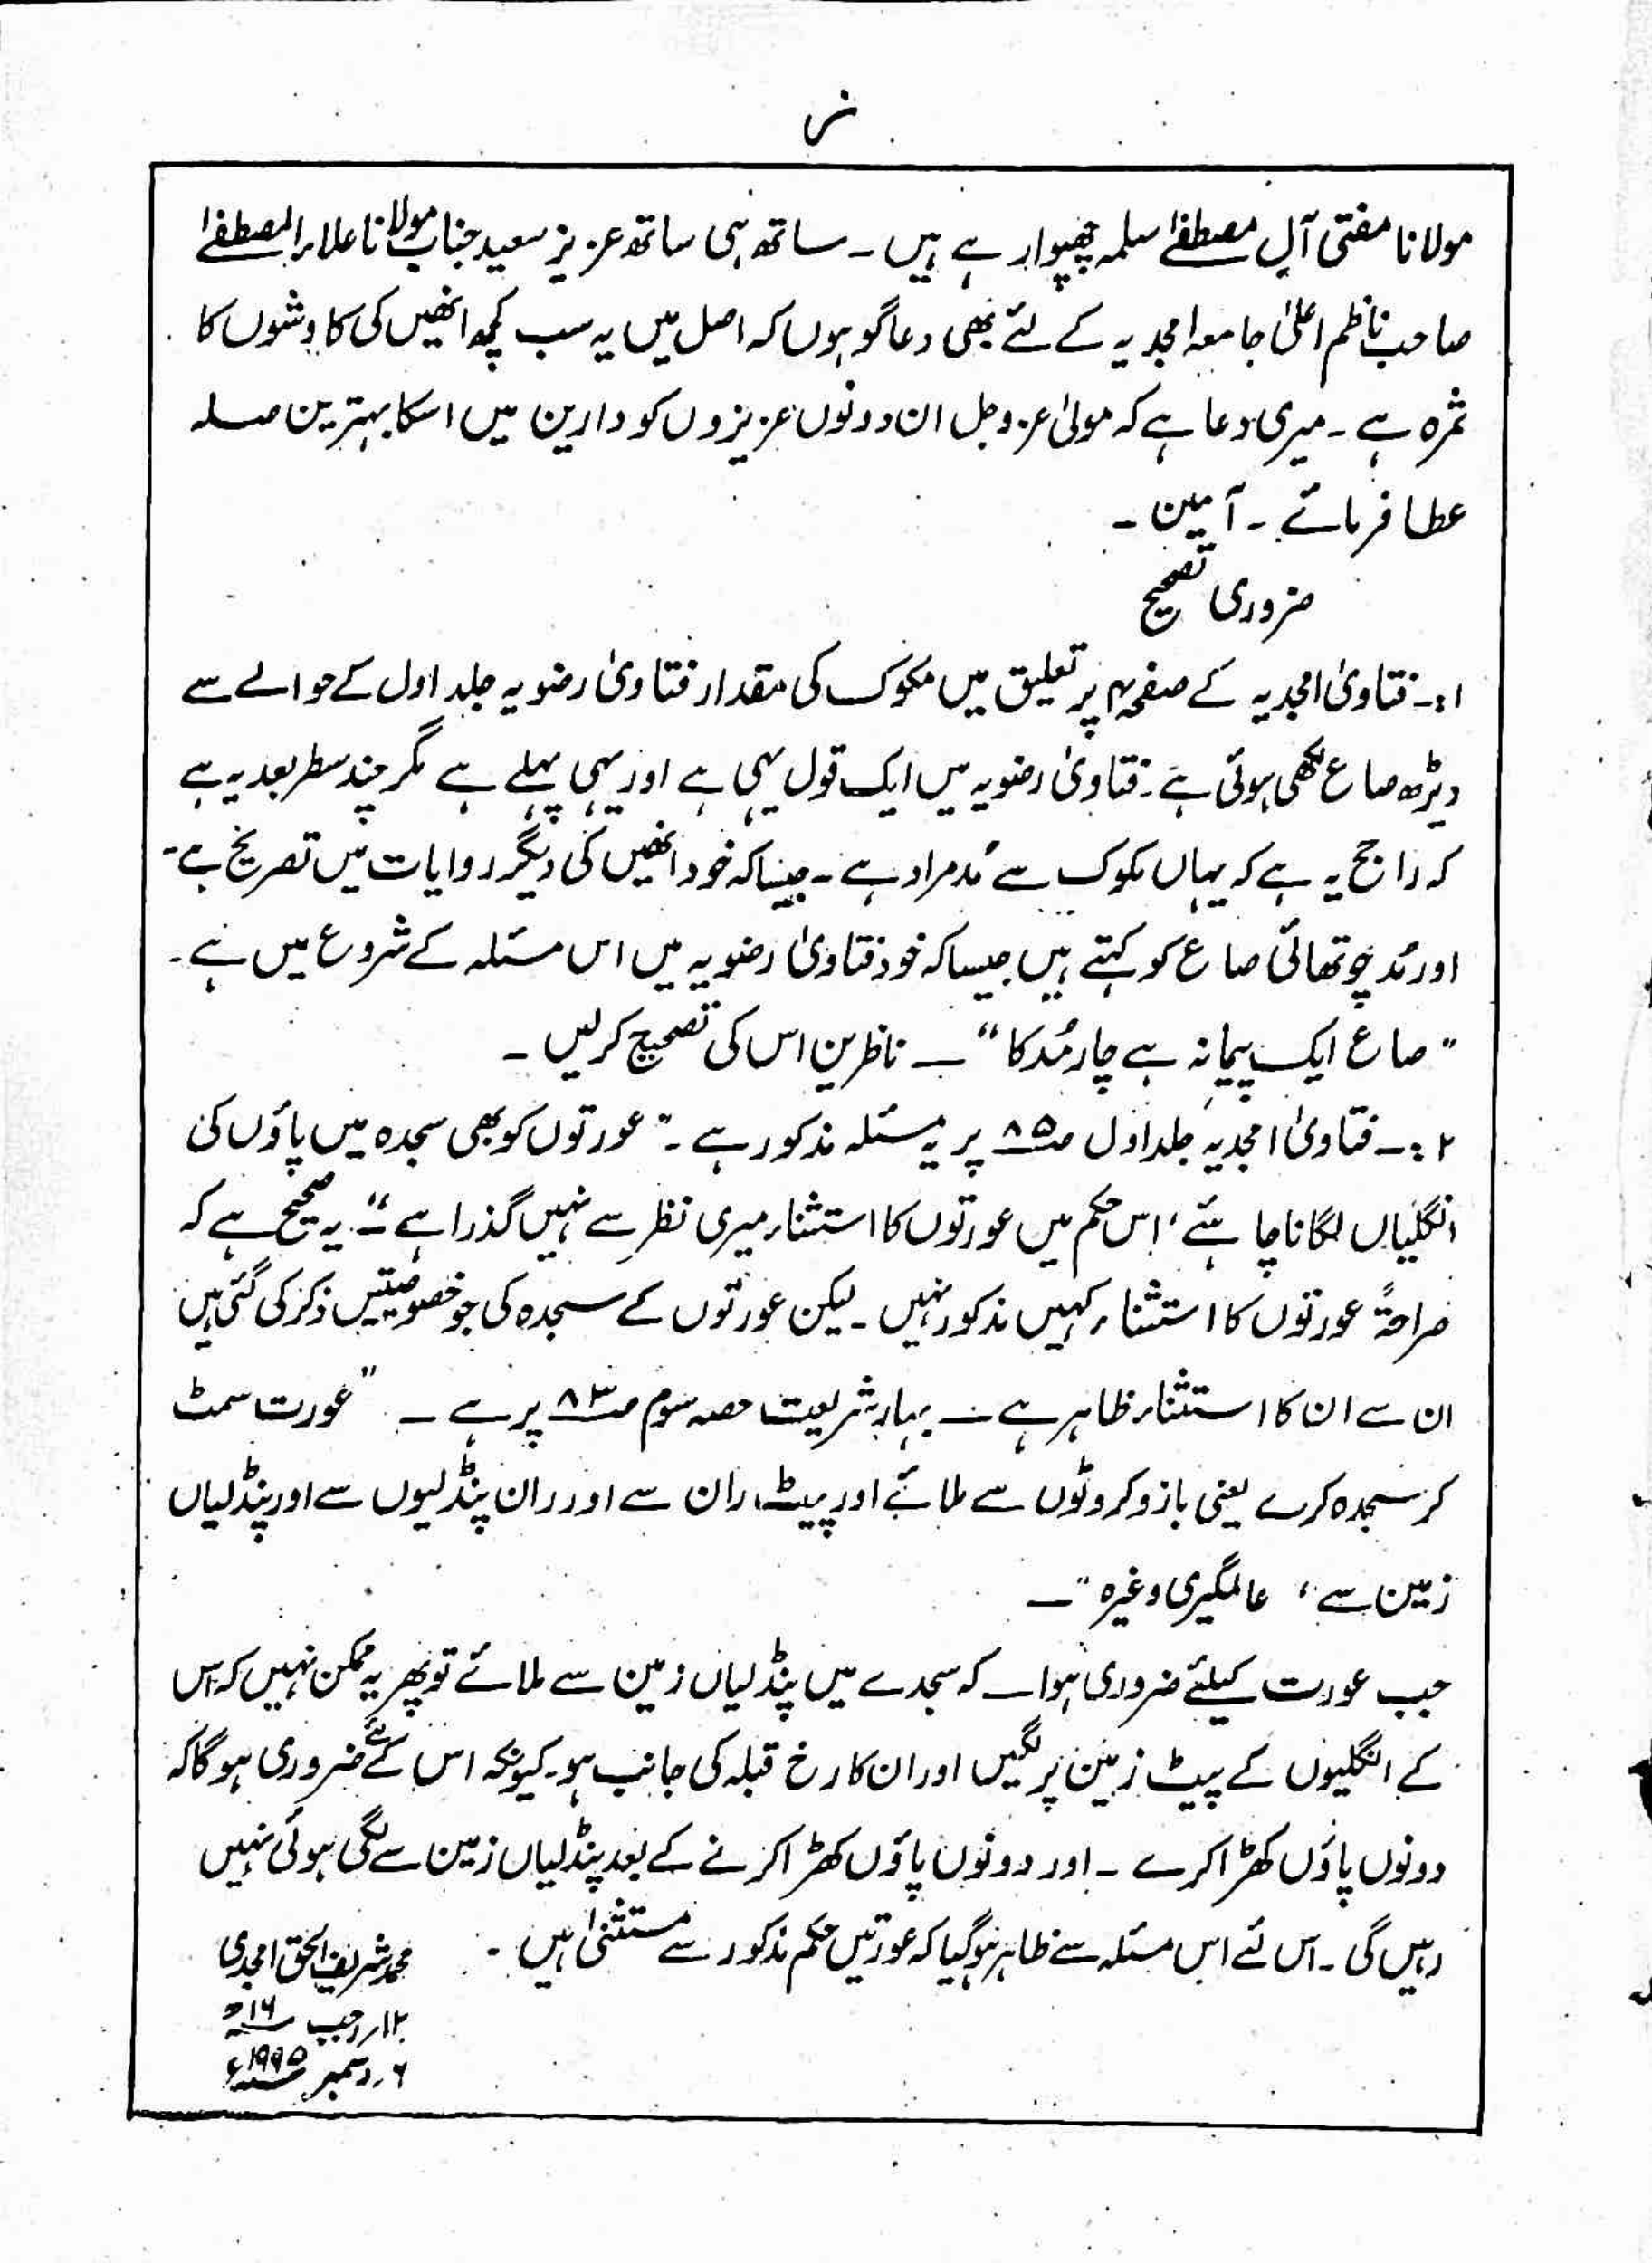 ز
مولانا مفتی آل مصطفےٰ سلمہ چھپوار ہے ہیں ۔ ساتھ ہی ساتھ عزیز سعید جناب مولانا علاء المصطفےٰ
صاحب ناظم اعلیٰ جامعہ امجدیہ کے لئے بھی دعا گو ہوں کہ اصل میں یہ سب کچھ انھیں کی کاوشوں کا
ثمرہ ہے ۔ میری دعا ہے کہ مولیٰ عزوجل ان دونوں عزیزوں کو دارین میں اسکا بہترین صلہ
عطا فرمائے ۔ آمین ۔
ضروری تصحیح
۱:۔ فتاویٰ امجدیہ کے صفحہ پر تعلیق میں مکوک کی مقدار فتاویٰ رضویہ جلد اول کے حوالے سے
دیڑھ صاع لکھی ہوئی ہے ۔ فتاویٰ رضویہ میں ایک قول یہی ہے اور یہی پہلے ہے مگر چند سطر بعد یہ ہے
کہ راجح یہ ہے کہ یہاں مکوک سے مُد مراد ہے ۔ جیسا کہ خود انھیں کی دیگر روایات میں تصریح ہے ۔
اور مُد چوتھائی صاع کو کہتے ہیں جیسا کہ خود فتاویٰ رضویہ میں اس مسئلہ کے شروع میں ہے ۔
" صاع ایک پیمانہ ہے چار مُد کا " ــ ناظرین اس کی تصحیح کر لیں ۔
۲:۔ فتاویٰ امجدیہ جلد اول صـ۸۵ پر یہ مسئلہ مذکور ہے ۔ " عورتوں کو بھی سجدہ میں پاؤں کی
انگلیاں لگانا چاہئے ، اس حکم میں عورتوں کا استثناء میری نظر سے نہیں گذرا ہے "۔ یہ صحیح ہے کہ
صراحۃً عورتوں کا استثناء کہیں مذکور نہیں ۔ لیکن عورتوں کے سجدہ کی جو خصوصیتیں ذکر کی گئی ہیں
ان سے ان کا استثناء ظاہر ہے ۔ بہار شریعت حصہ سوم صـ۸۳ پر ہے ۔ " عورت سمٹ
کر سجدہ کرے یعنی بازو کروٹوں سے ملائے اور پیٹ ران سے اور ران پنڈلیوں سے اور پنڈلیاں
زمین سے ، عالمگیری وغیرہ " ــ
جب عورت کیلئے ضروری ہوا کہ سجدے میں پنڈلیاں زمین سے ملائے تو پھر یہ ممکن نہیں کہ اس
کے انگلیوں کے پیٹ زمین پر لگیں اور ان کا رخ قبلہ کی جانب ہو ۔ کیونکہ اس کے لئے ضروری ہو گا کہ
دونوں پاؤں کھڑا کرے ۔ اور دونوں پاؤں کھڑا کرنے کے بعد پنڈلیاں زمین سے لگی ہوئی نہیں
رہیں گی ۔ اس لئے اس مسئلہ سے ظاہر ہو گیا کہ عورتیں حکم مذکور سے مستثنیٰ ہیں ۔
محمد شریف الحق امجدی
۱۲؍ رجب ۱۶ھ
۶؍ دسمبر ۱۹۹۵ء